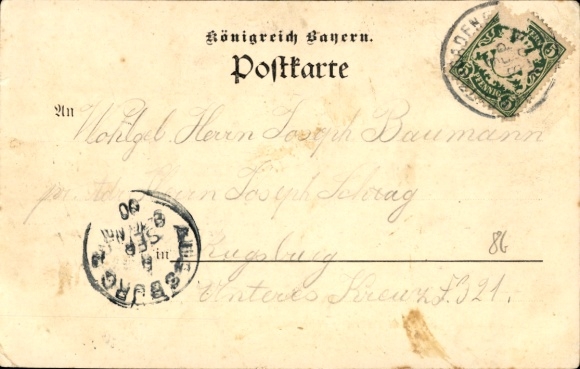 Königreich Bayern.
Postkarte
An Wohlgeb. Herrn Joseph Baumann
pr. Adr. Herrn Joseph Schrag
in Augsburg
86
Unteres Kreuz F. 321.
AUGSBURG 2
8
SEP
00
5
PFENNIG